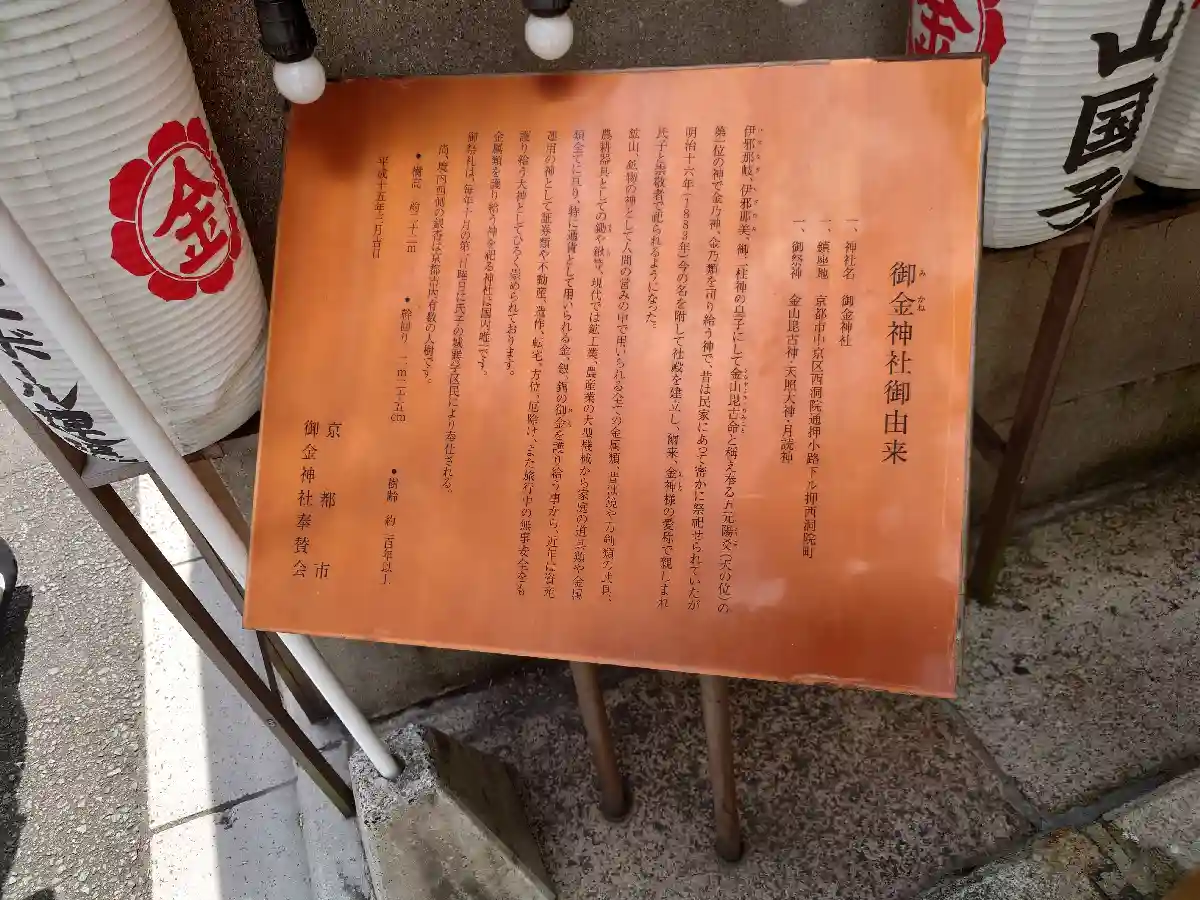 御金神社御由来
みかね
一、神社名 御金神社
一、鎮座地 京都市中京区西洞院通押小路下ル押西洞院町
一、御祭神 金山毘古神・天照大神・月読神
伊邪那岐、伊邪那美、御二柱神の皇子にして金山毘古命と称え奉る五元陽爻(天の位)の
第一位の神で金乃神、金乃類を司り給う神で、昔は民家にあって密かに祭祀せられていたが
明治十六年(1883年)今の名を附して社殿を建立し、爾来、金神様の愛称で親しまれ
氏子と崇敬者で祀られるようになった。
鉱山、鉱物の神として人間の営みの中で用いられる全ての金属類、
農耕器具としての鋤や鍬等、現代では鉱工業、農産業の大型機械から家庭の道具類や金属
類全てに亘り、特に通貨として用いられる金、銀、銅の御金を護り給う事から、近年は資産
運用の神として証券類や不動産、造作、転宅、方位、厄除け、また旅行中の無事安全をも
護り給う大神としてひろく崇められております。
金属類を護り給う神を祀る神社は国内唯一です。
御祭礼は、毎年十月の第二日曜日に氏子の城巽学区民により奉仕される。
尚、境内西側の銀杏は京都市内有数の大樹です。
・樹高 約二十二m ・幹回り 二m二十五cm ・樹齢 約二百年以上
平成十五年三月吉日
京都市
御金神社奉賛会
金
山国子